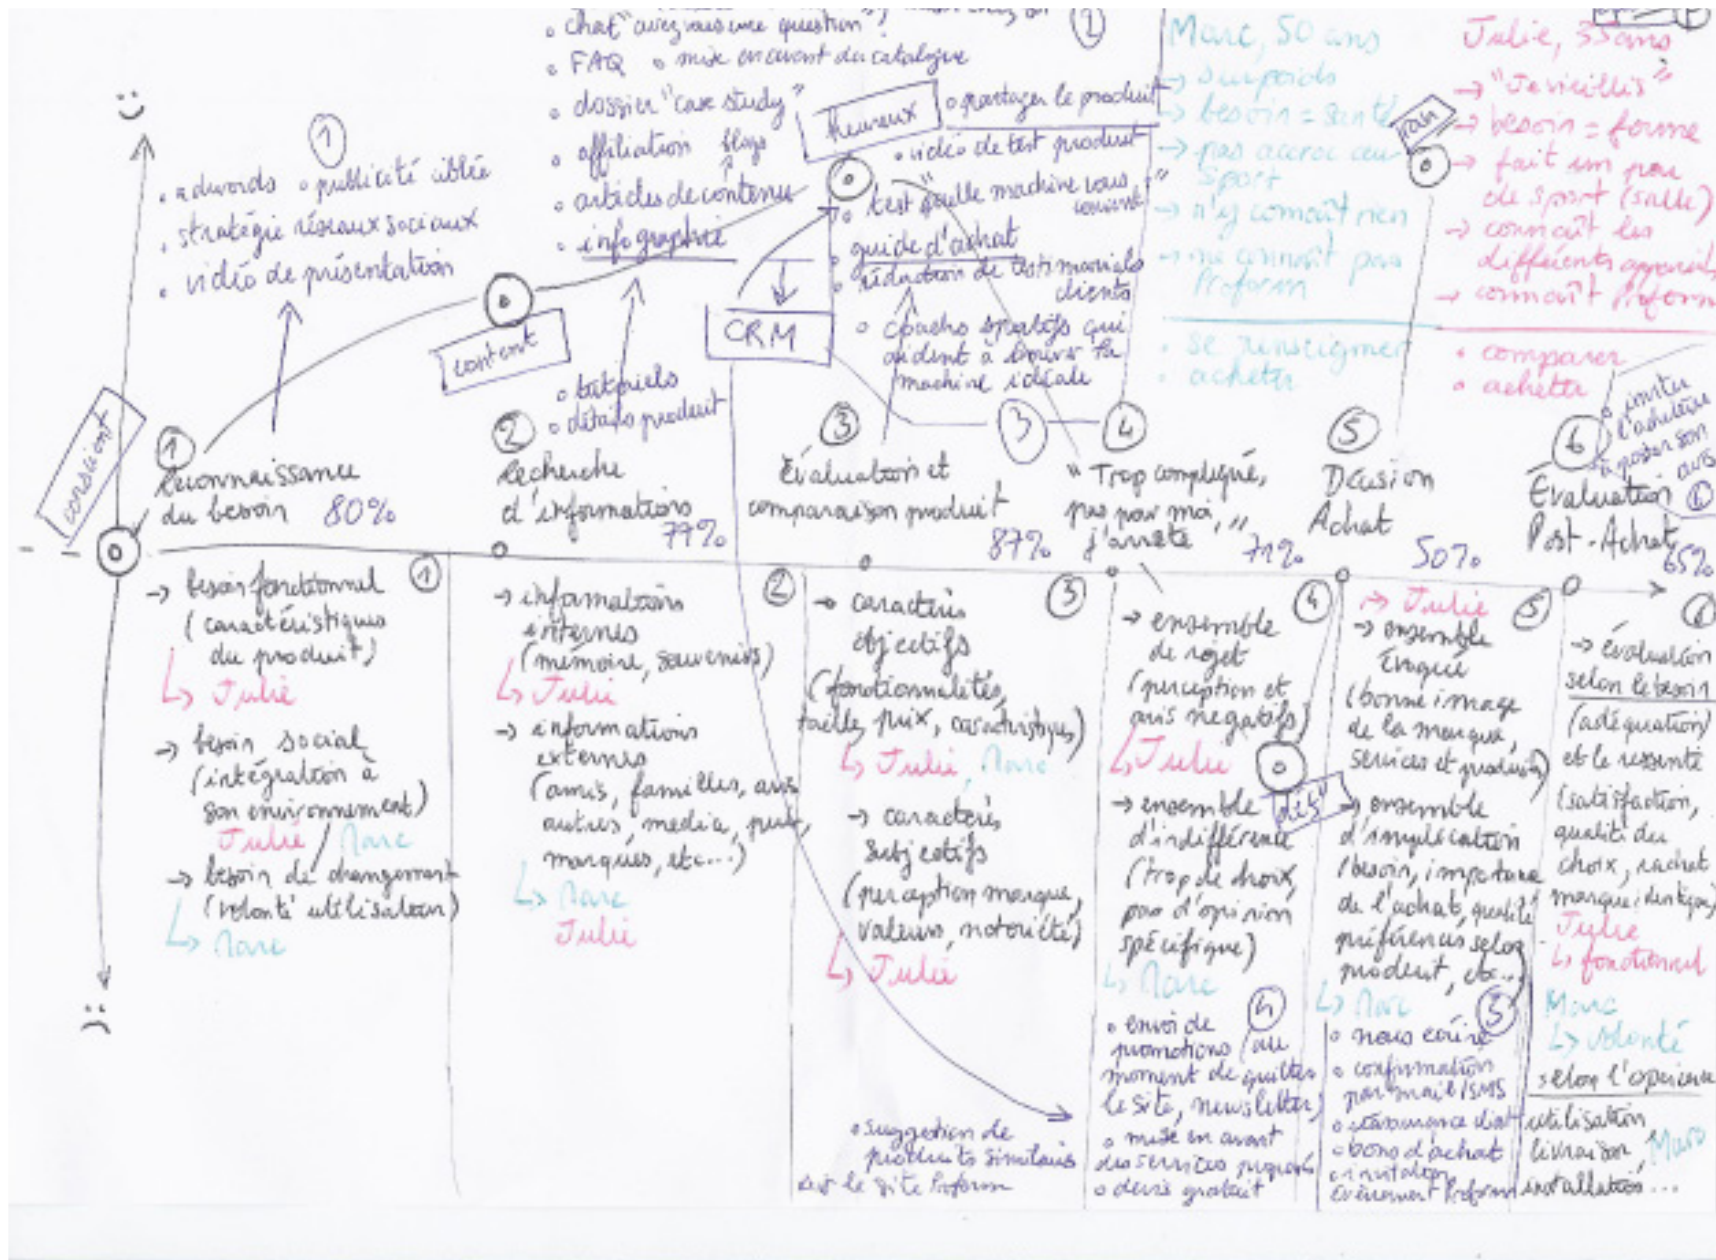 • chat "avez vous une question"?
• FAQ • mise en avant du catalogue
• dossier "case study"
• affiliation blogs
• articles de contenu
• infographie
①
• adwords • publicité ciblée
• stratégie réseaux sociaux
• vidéo de présentation
②
heureux
• partager le produit
• vidéo de test produit
• test "quelle machine vous
convient"
• guide d'achat
• rédaction de testimonials
clients
• coachs sportifs qui
aident à trouver la
machine idéale
CRM
content
• tutoriels
• détails produit
conscient
Marc, 50 ans
→ surpoids
→ besoin = santé
→ pas accroc au
sport
→ n'y connaît rien
→ ne connaît pas
Proform
• se renseigner
• acheter
Julie, 35 ans
→ "Je vieillis"
→ besoin = forme
→ fait un peu
de sport (salle)
→ connaît les
différents appareils
→ connaît Proform
• comparer
• acheter
• inviter
l'acheteur
à poster son
avis
①
Reconnaissance
du besoin 80%
②
Recherche
d'informations
77%
③
Évaluation et
comparaison produit
87%
③
④
"Trop compliqué,
pas pour moi,"
j'arrête
71%
⑤
Décision
Achat
50%
⑥
Évaluation
Post-Achat
65%
①
→ besoin fonctionnel
(caractéristiques
du produit)
↳ Julie
→ besoin social
(intégration à
son environnement)
Julie / Marc
→ besoin de changement
(volonté utilisation)
↳ Marc
②
→ informations
internes
(mémoire, souvenirs)
↳ Julie
→ informations
externes
(amis, familles, avis
autres, media, pub,
marques, etc...)
↳ Marc
Julie
③
→ caractères
objectifs
(fonctionnalités,
taille, prix, caractéristiques)
↳ Julie, Marc
→ caractères
subjectifs
(perception marque,
valeurs, notoriété)
↳ Julie
• suggestion de
produits similaires
sur le site Proform
④
→ ensemble
de rejet
(perception et
avis négatifs)
↳ Julie
→ ensemble
d'indifférence
(trop de choix,
pas d'opinion
spécifique)
↳ Marc
④
• envoi de
promotions (au
moment de quitter
le site, newsletter)
• mise en avant
des services proposés
• devis gratuit
⑤
→ Julie
→ ensemble
évoqué
(bonne image
de la marque,
services et produits)
→ ensemble
d'implication
(besoin, importance
de l'achat, qualité
préférences selon
produit, etc...)
↳ Marc
⑤
• nous écrire
• confirmation
par mail/SMS
• bons d'achat
• invitation
évènement Proform
⑥
→ évaluation
selon le besoin
(adéquation)
et le ressenti
(satisfaction,
qualité du
choix, rachat
marque identique)
Julie
↳ fonctionnel
Marc
↳ volonté
selon l'expérience
utilisation
livraison, Marc
installation...